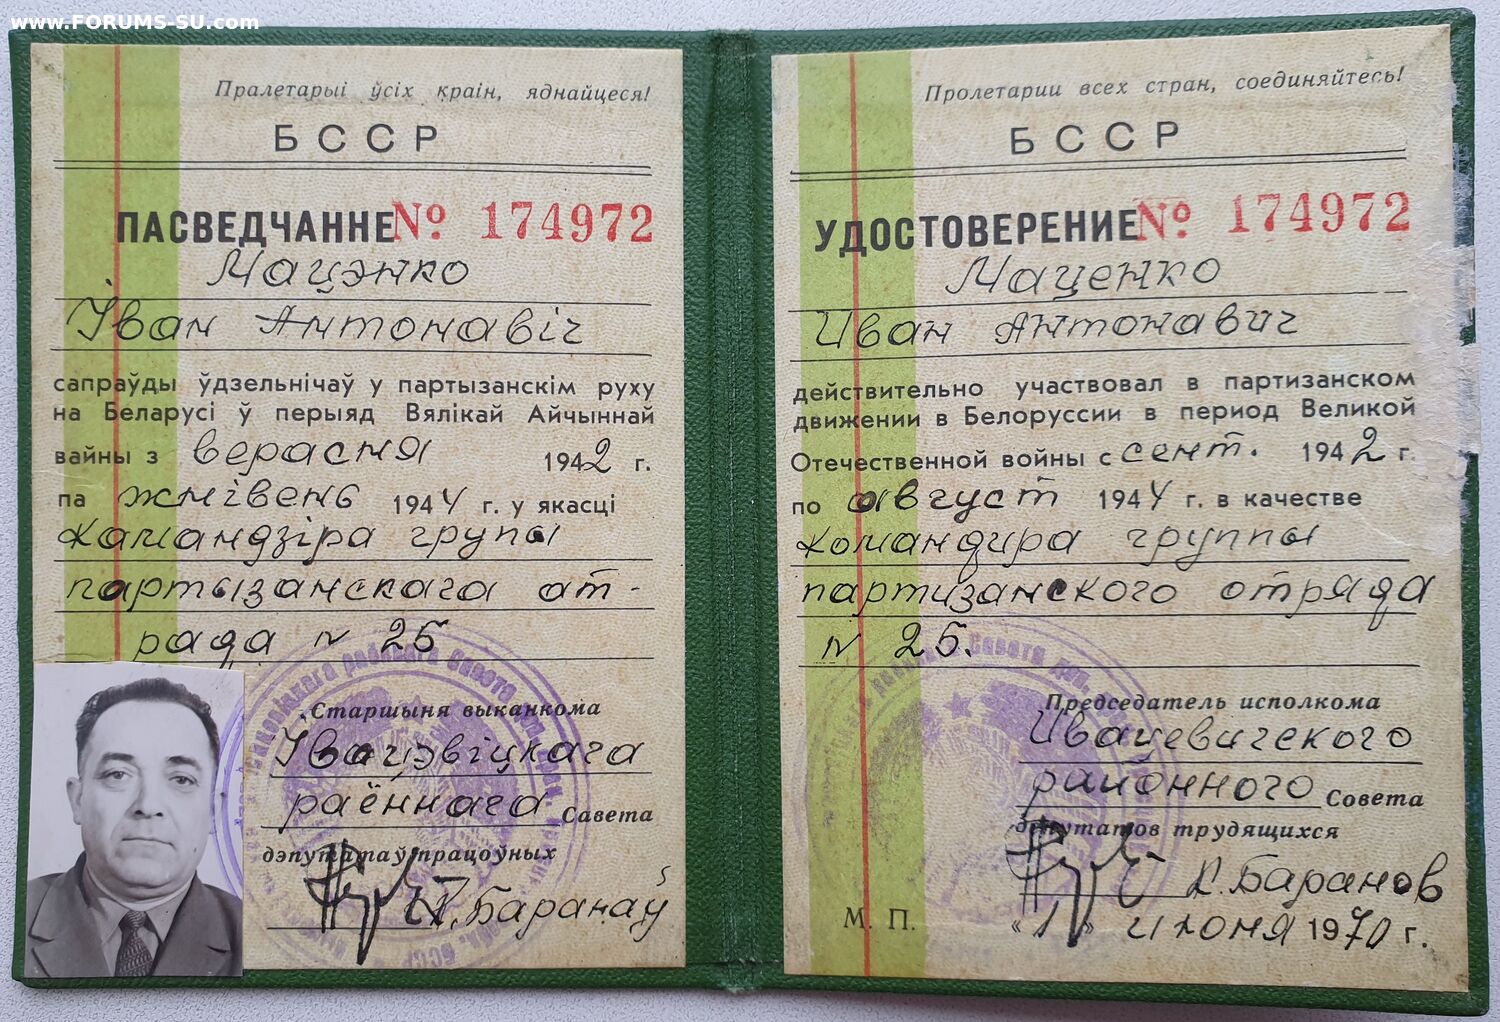 www.FORUMS-SU.com
Пралетарыі ўсіх краін, яднайцеся!
БССР
ПАСВЕДЧАННЕ № 174972
Мацэнко
Іван Антонавіч
сапраўды ўдзельнічаў у партызанскім руху
на Беларусі ў перыяд Вялікай Айчыннай
вайны з верасня 1942 г.
па жнівень 1944 г. у якасці
камандзіра групы
партызанскага ат-
рада № 25
Старшыня выканкома
Івацэвіцкага
раённага Савета
дэпутатаў працоўных
Баранаў
Пролетарии всех стран, соединяйтесь!
БССР
УДОСТОВЕРЕНИЕ № 174972
Маценко
Иван Антонавич
действительно участвовал в партизанском
движении в Белоруссии в период Великой
Отечественной войны с сент. 1942 г.
по август 1944 г. в качестве
командира группы
партизанского отряда
№ 25.
Председатель исполкома
Ивацевичского
районного Совета
депутатов трудящихся
Баранов
М. П. «1» июня 1970 г.